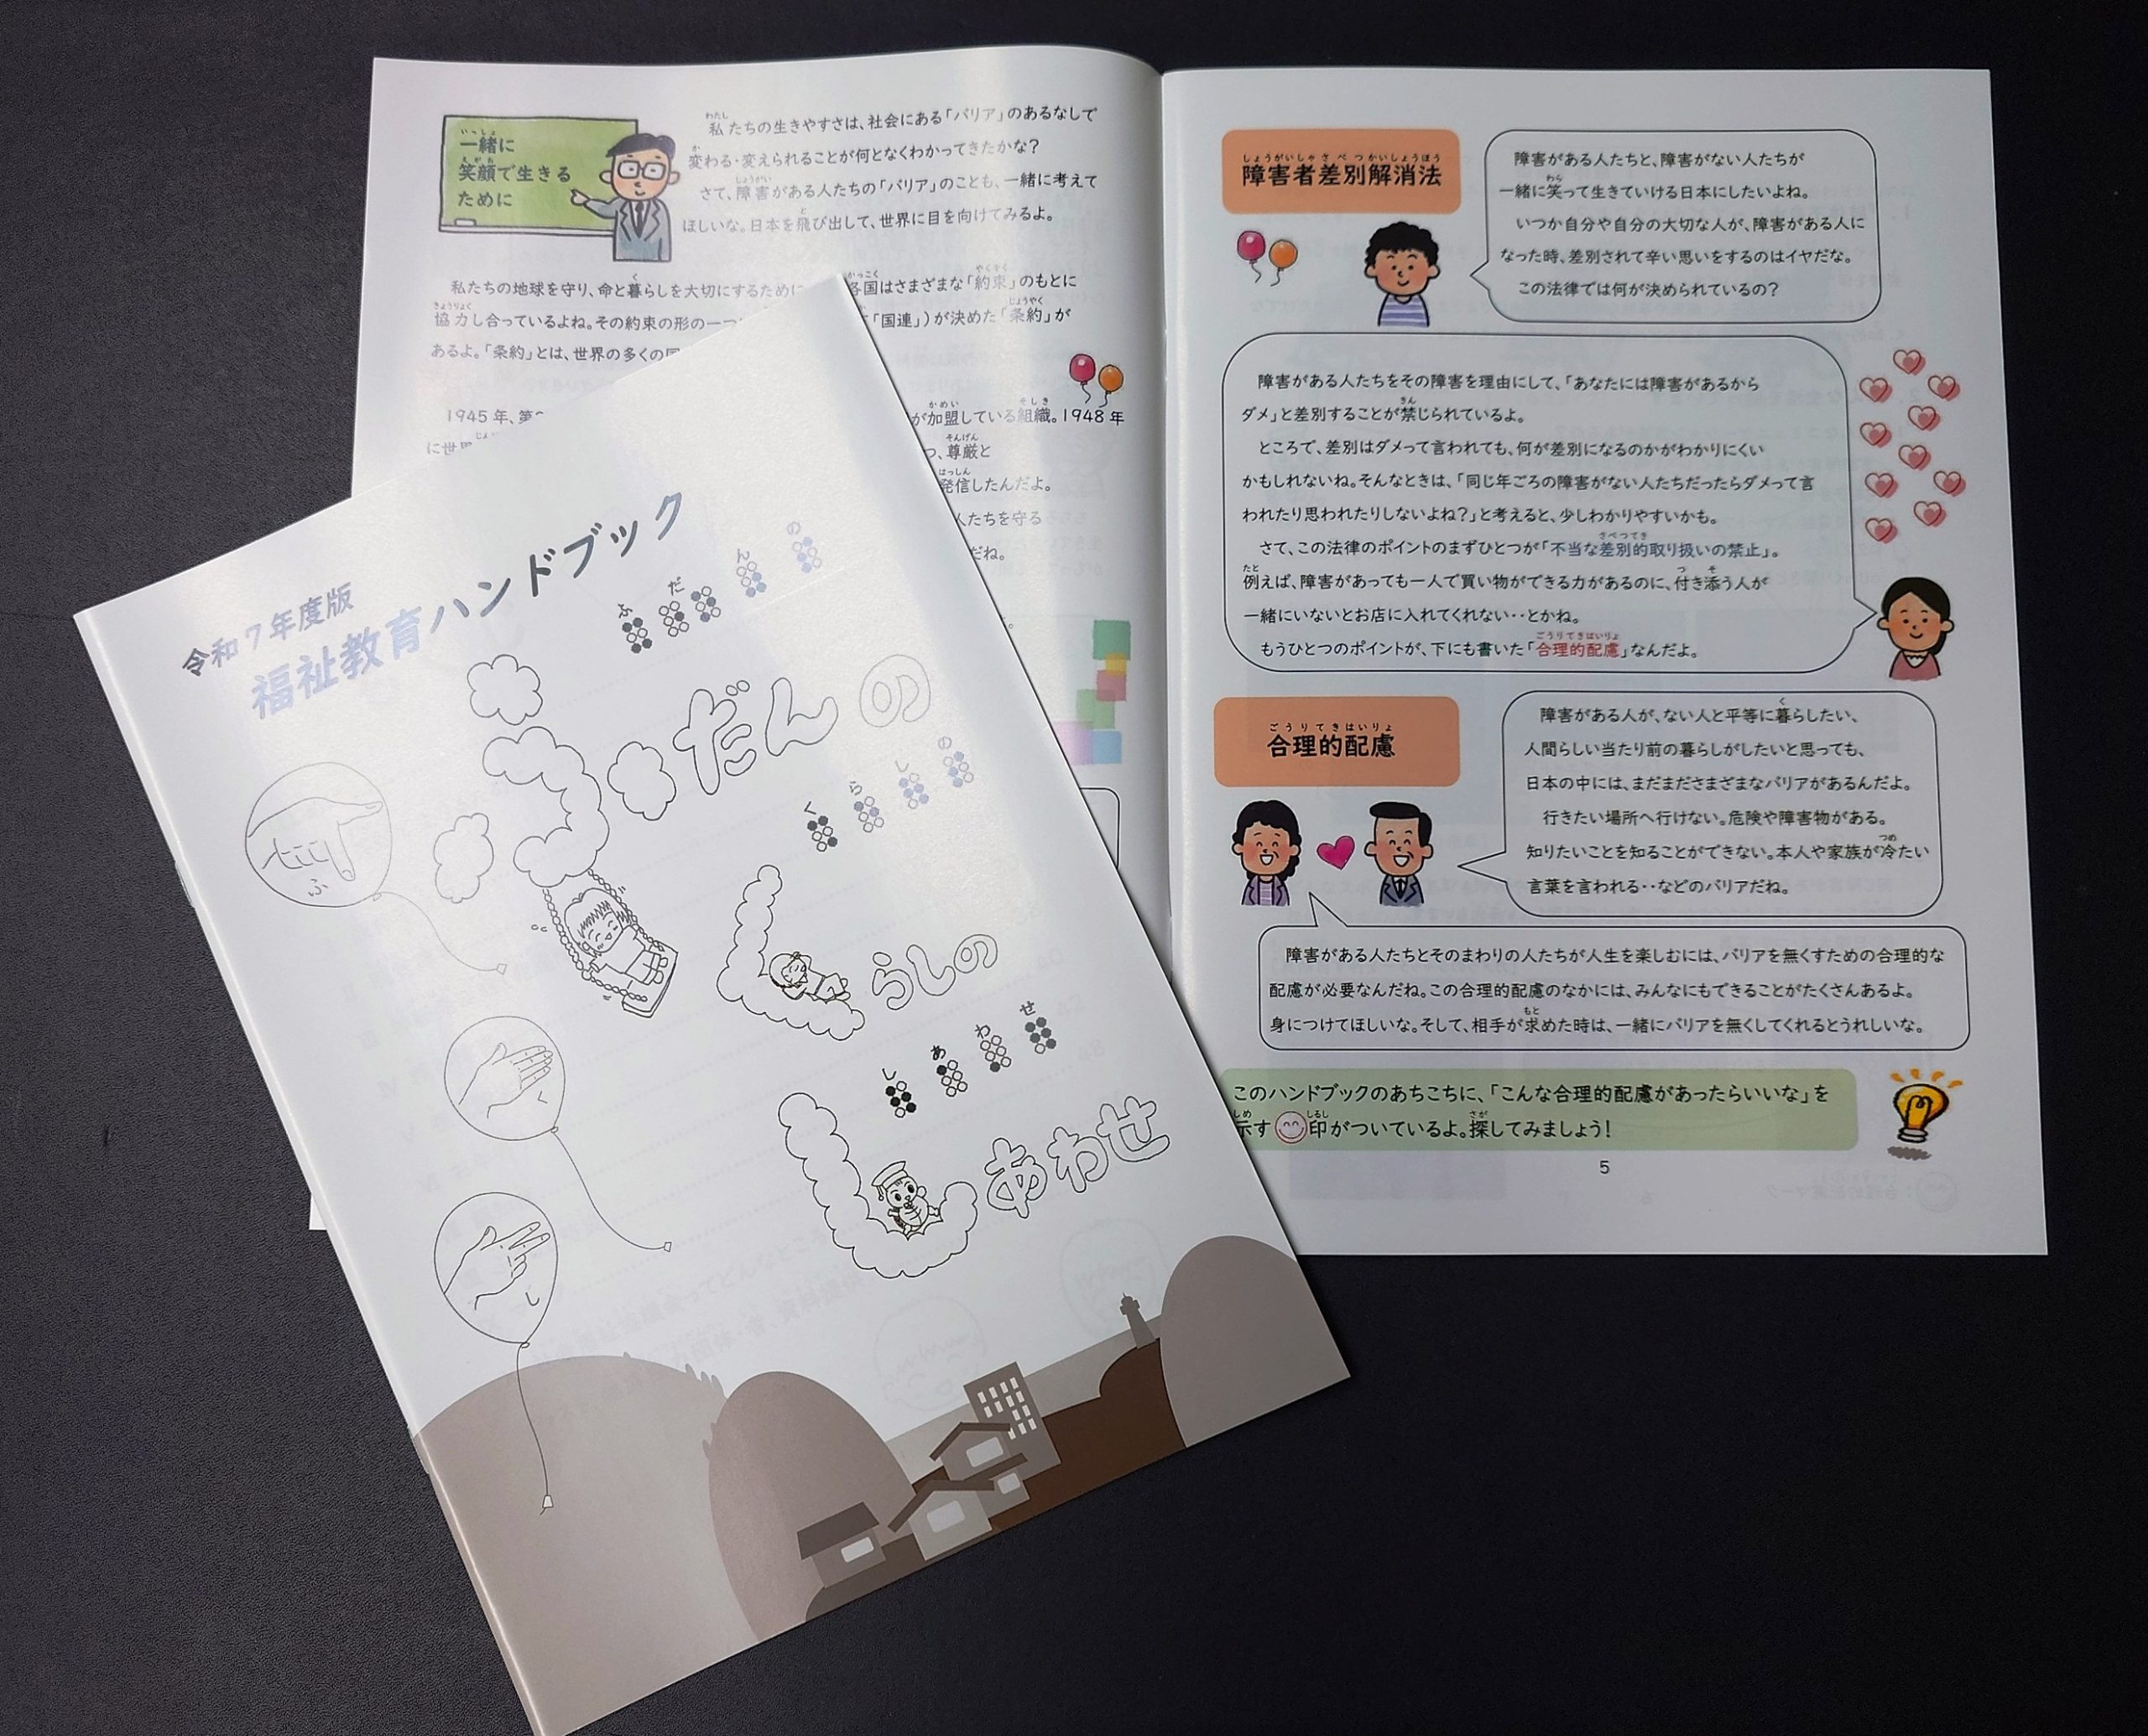 令和7年度版
福祉教育ハンドブック
ふ だ ん の
ふだんの
く ら し の
くらしの
し あ わ せ
しあわせ
ふ
し
いっしょ
一緒に
えがお
笑顔で生きる
ために
わたし
私たちの生きやすさは、社会にある「バリア」のあるなしで
か
変わる・変えられることが何となくわかってきたかな?
しょうがい
さて、障害がある人たちの「バリア」のことも、一緒に考えて
と
ほしいな。日本を飛び出して、世界に目を向けてみるよ。
く かっこく やくそく
私たちの地球を守り、命と暮らしを大切にするために 各国はさまざまな「約束」のもとに
きょうりょく じょうやく
協力し合っているよね。その約束の形の一つ 「国連」)が決めた「条約」が
あるよ。「条約」とは、世界の多くの
かめい そしき
1945年、第 が加盟している組織。1948年
に世
そんげん
つ、尊厳と
はっしん
発信したんだよ。
人たちを守る
だね。
しょうがいしゃさべつかいしょうほう
障害者差別解消法
障害がある人たちと、障害がない人たちが
わら
一緒に笑って生きていける日本にしたいよね。
いつか自分や自分の大切な人が、障害がある人に
なった時、差別されて辛い思いをするのはイヤだな。
この法律では何が決められているの?
障害がある人たちをその障害を理由にして、「あなたには障害があるから
きん
ダメ」と差別することが禁じられているよ。
ところで、差別はダメって言われても、何が差別になるのかがわかりにくい
かもしれないね。そんなときは、「同じ年ごろの障害がない人たちだったらダメって言
われたり思われたりしないよね?」と考えると、少しわかりやすいかも。
さべつてき
さて、この法律のポイントのまずひとつが「不当な差別的取り扱いの禁止」。
たと つ そ
例えば、障害があっても一人で買い物ができる力があるのに、付き添う人が
一緒にいないとお店に入れてくれない‥とかね。
ごうりてきはいりょ
もうひとつのポイントが、下にも書いた「合理的配慮」なんだよ。
ごうりてきはいりょ
合理的配慮
く
障害がある人が、ない人と平等に暮らしたい、
人間らしい当たり前の暮らしがしたいと思っても、
日本の中には、まだまださまざまなバリアがあるんだよ。
行きたい場所へ行けない。危険や障害物がある。
つめ
知りたいことを知ることができない。本人や家族が冷たい
言葉を言われる‥などのバリアだね。
障害がある人たちとそのまわりの人たちが人生を楽しむには、バリアを無くすための合理的な
配慮が必要なんだね。この合理的配慮のなかには、みんなにもできることがたくさんあるよ。
もと
身につけてほしいな。そして、相手が求めた時は、一緒にバリアを無くしてくれるとうれしいな。
このハンドブックのあちこちに、「こんな合理的配慮があったらいいな」を
しめ しるし さが
示す 印がついているよ。探してみましょう!
5